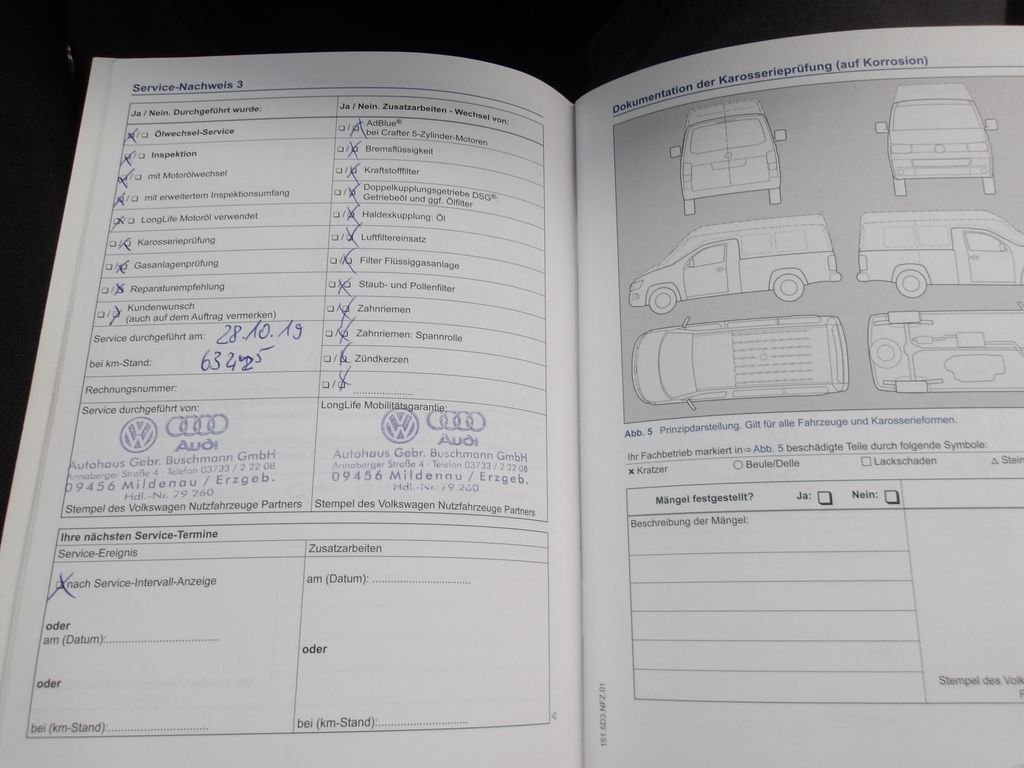 Service-Nachweis 3
Ja / Nein. Durchgeführt wurde:
Ölwechsel-Service
Inspektion
mit Motorölwechsel
mit erweitertem Inspektionsumfang
LongLife Motoröl verwendet
Karosserieprüfung
Gasanlagenprüfung
Reparaturempfehlung
Kundenwunsch
(auch auf dem Auftrag vermerken)
Service durchgeführt am: 28.10.19
bei km-Stand:
Rechnungsnummer:
Ja / Nein. Zusatzarbeiten - Wechsel von:
AdBlue®
bei Crafter 5-Zylinder-Motoren
Bremsflüssigkeit
Kraftstofffilter
Doppelkupplungsgetriebe DSG®:
Getriebeöl und ggf. Ölfilter
Haldexkupplung: Öl
Luftfiltereinsatz
Filter Flüssiggasanlage
Staub- und Pollenfilter
Zahnriemen
Zahnriemen: Spannrolle
Zündkerzen
Service durchgeführt von:
Audi
Autohaus Gebr. Buschmann GmbH
Annaberger Straße 4 - Telefon 03733 / 2 22 08
09456 Mildenau / Erzgeb.
Hdl.-Nr. 79 260
Stempel des Volkswagen Nutzfahrzeuge Partners
LongLife Mobilitätsgarantie:
Audi
Autohaus Gebr. Buschmann GmbH
Annaberger Straße 4 - Telefon 03733 / 2 22 08
09456 Mildenau / Erzgeb.
Hdl.-Nr. 79 260
Stempel des Volkswagen Nutzfahrzeuge Partners
Ihre nächsten Service-Termine
Service-Ereignis
nach Service-Intervall-Anzeige
oder
am (Datum):
oder
bei (km-Stand):
Zusatzarbeiten
am (Datum):
oder
bei (km-Stand):
Dokumentation der Karosserieprüfung (auf Korrosion)
Abb. 5 Prinzipdarstellung. Gilt für alle Fahrzeuge und Karosserieformen.
Ihr Fachbetrieb markiert in ⇒ Abb. 5 beschädigte Teile durch folgende Symbole:
× Kratzer ○ Beule/Delle □ Lackschaden △ Stein
Mängel festgestellt? Ja: Nein:
Beschreibung der Mängel:
Stempel des Volk
151.5D3.NFZ.01